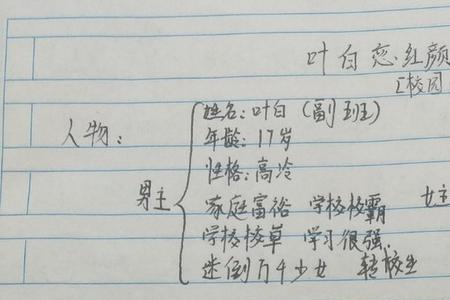 叶白恋红颜
[校园
人物：
男主
姓名：叶白（副班）
年龄：17岁
性格：高冷
家庭富裕 学校校霸
学校校草 学习很强.
迷倒万千少女 转校生
女主